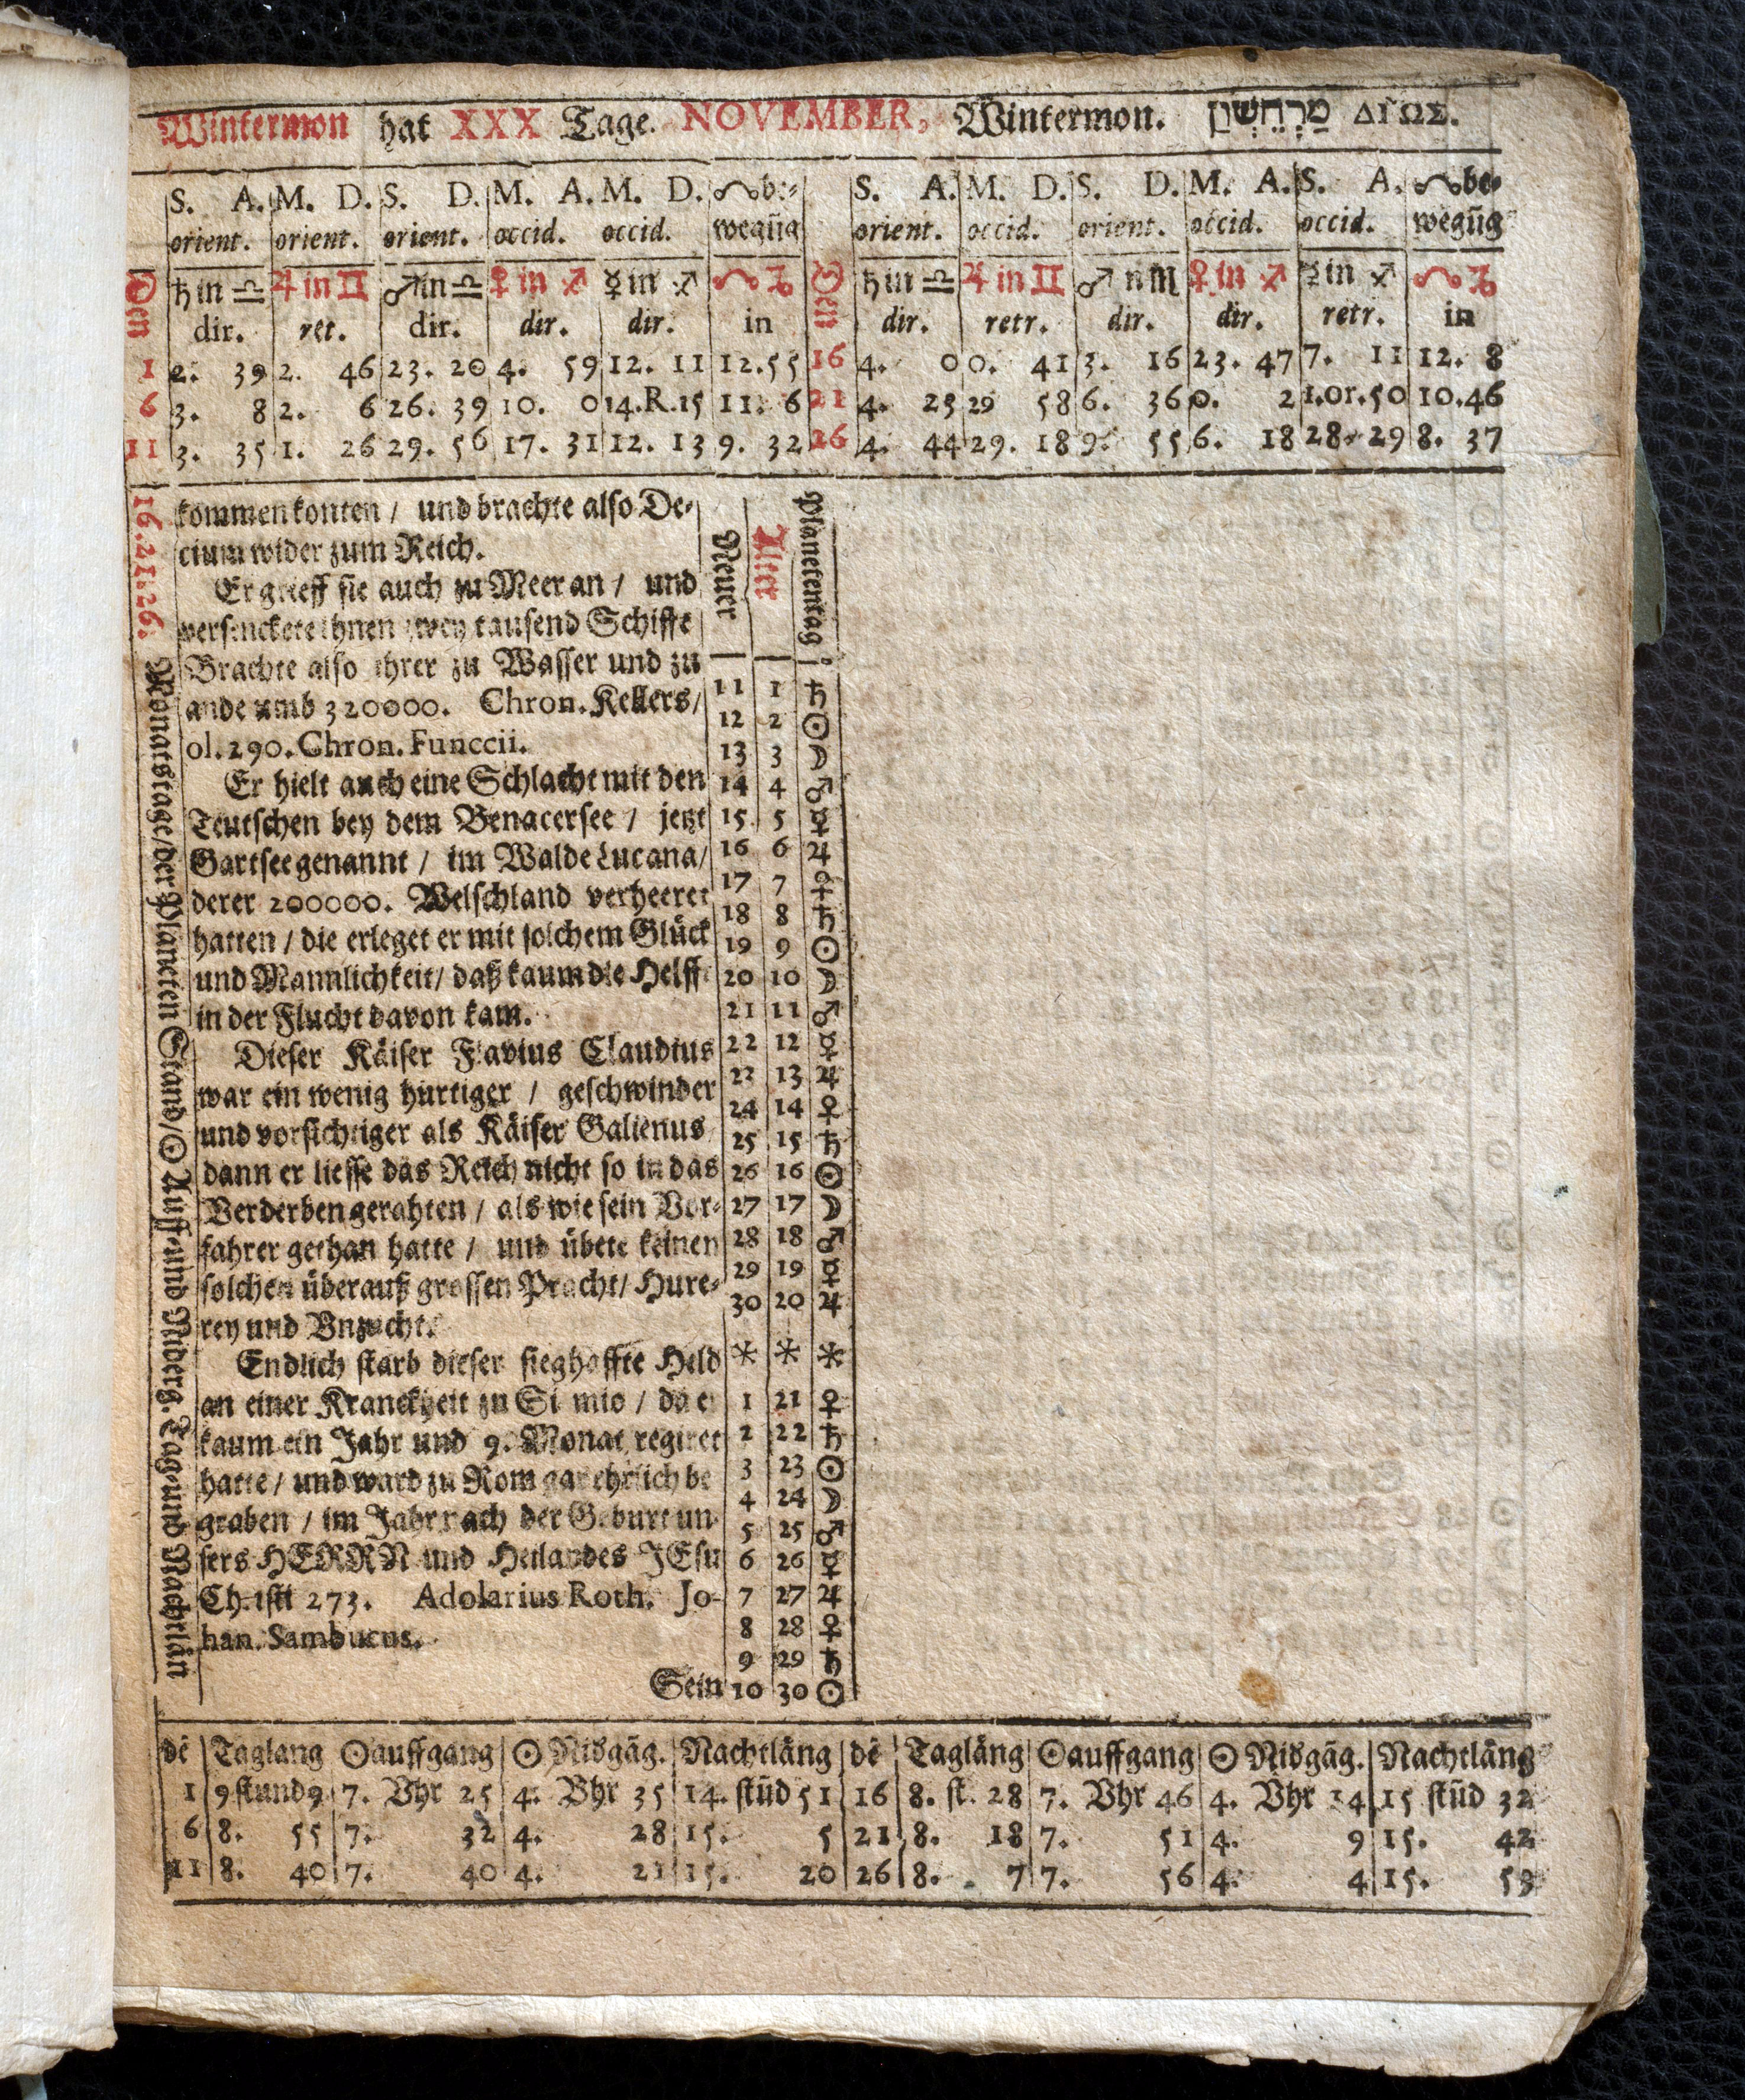 Wintermon hat XXX Tage. NOVEMBER, Wintermon. מַרְחֵשְׁםָ ΔΙΓΩΣ.
S. A. M. D. S. D. M. A. M. D. ☊be- S. A. M. D. S. D. M. A. S. A. ☊be-
orient. orient. orient. occid. occid. wegūg orient. occid. orient. occid. occid. wegūg
Den ♄ in ♎ ♃ in ♊ ♂ in ♎ ♀ in ♐ ☿ in ♐ ☊ ♑ Den ♄ in ♎ ♃ in ♊ ♂ in ♏ ♀ in ♐ ☿ in ♐ ☊ ♑
dir. ret. dir. dir. dir. in dir. retr. dir. dir. retr. in
1 2. 39 2. 46 23. 20 4. 59 12. 11 12. 55 16 4. 0 0. 41 3. 16 23. 47 7. 11 12. 8
6 3. 8 2. 6 26. 39 10. 0 14.R.15 11. 6 21 4. 23 29 58 6. 36 0. 2 1.or.50 10.46
11 3. 35 1. 26 29. 56 17. 31 12. 13 9. 32 26 4. 44 29. 18 9. 55 6. 18 28. 29 8. 37
16.21.26. Monatstage/der Planeten Stand/☉ Auff-und Niderg. Tag-und Nachtlän
kommen konten / und brachte also De-
cium wider zum Reich.
Er grieff sie auch zu Meer an / und
versenckete ihnen zwey tausend Schiffe
Brachte also ihrer zu Wasser und zu
ande umb 320000. Chron. Kellers/
ol. 290. Chron. Funccii.
Er hielt auch eine Schlacht mit den
Teutschen bey dem Benacersee / jetzt
Gartsee genannt / im Walde Lucana/
derer 200000. Welschland verheeret
hatten / die erleget er mit solchem Glück
und Mannlichkeit/ daß kaum die Helff
in der Flucht davon kam.
Dieser Käiser Flavius Claudius
war ein wenig hurtiger / geschwinder
und vorsichtiger als Käiser Galienus
dann er liesse das Reich nicht so in das
Verderben gerahten / als wie sein Vor-
fahrer gethan hatte / und übete keinen
solchen überauß grossen Pracht/ Hure-
rey und Vnzucht.
Endlich starb dieser sieghaffte Held
an einer Kranckheit zu Si mio / da er
kaum ein Jahr und 9. Monat regiret
hatte / und ward zu Rom gar ehrlich be
graben / im Jahr nach der Geburt un-
sers HERRN und Heilandes JEsu
Christi 273. Adolarius Roth. Jo-
han. Sambucus.
Sein
Neuer Alter Planetentag
11 1 ♄
12 2 ☉
13 3 ☽
14 4 ♂
15 5 ☿
16 6 ♃
17 7 ♀
18 8 ♄
19 9 ☉
20 10 ☽
21 11 ♂
22 12 ☿
23 13 ♃
24 14 ♀
25 15 ♄
26 16 ☉
27 17 ☽
28 18 ♂
29 19 ☿
30 20 ♃
* * *
1 21 ♀
2 22 ♄
3 23 ☉
4 24 ☽
5 25 ♂
6 26 ☿
7 27 ♃
8 28 ♀
9 29 ♄
10 30 ☉
dē Taglang ☉auffgang ☉ Nidgāg. Nachtläng dē Tagläng ☉auffgang ☉ Nidgāg. Nachtläng
1 9 stund 9 7. Vhr 25 4. Vhr 35 14. stūd 51 16 8. st. 28 7. Vhr 46 4. Vhr 14 15 stūd 32
6 8. 55 7. 32 4. 28 15. 5 21 8. 18 7. 51 4. 9 15. 42
11 8. 40 7. 40 4. 21 15. 20 26 8. 7 7. 56 4. 4 15. 53